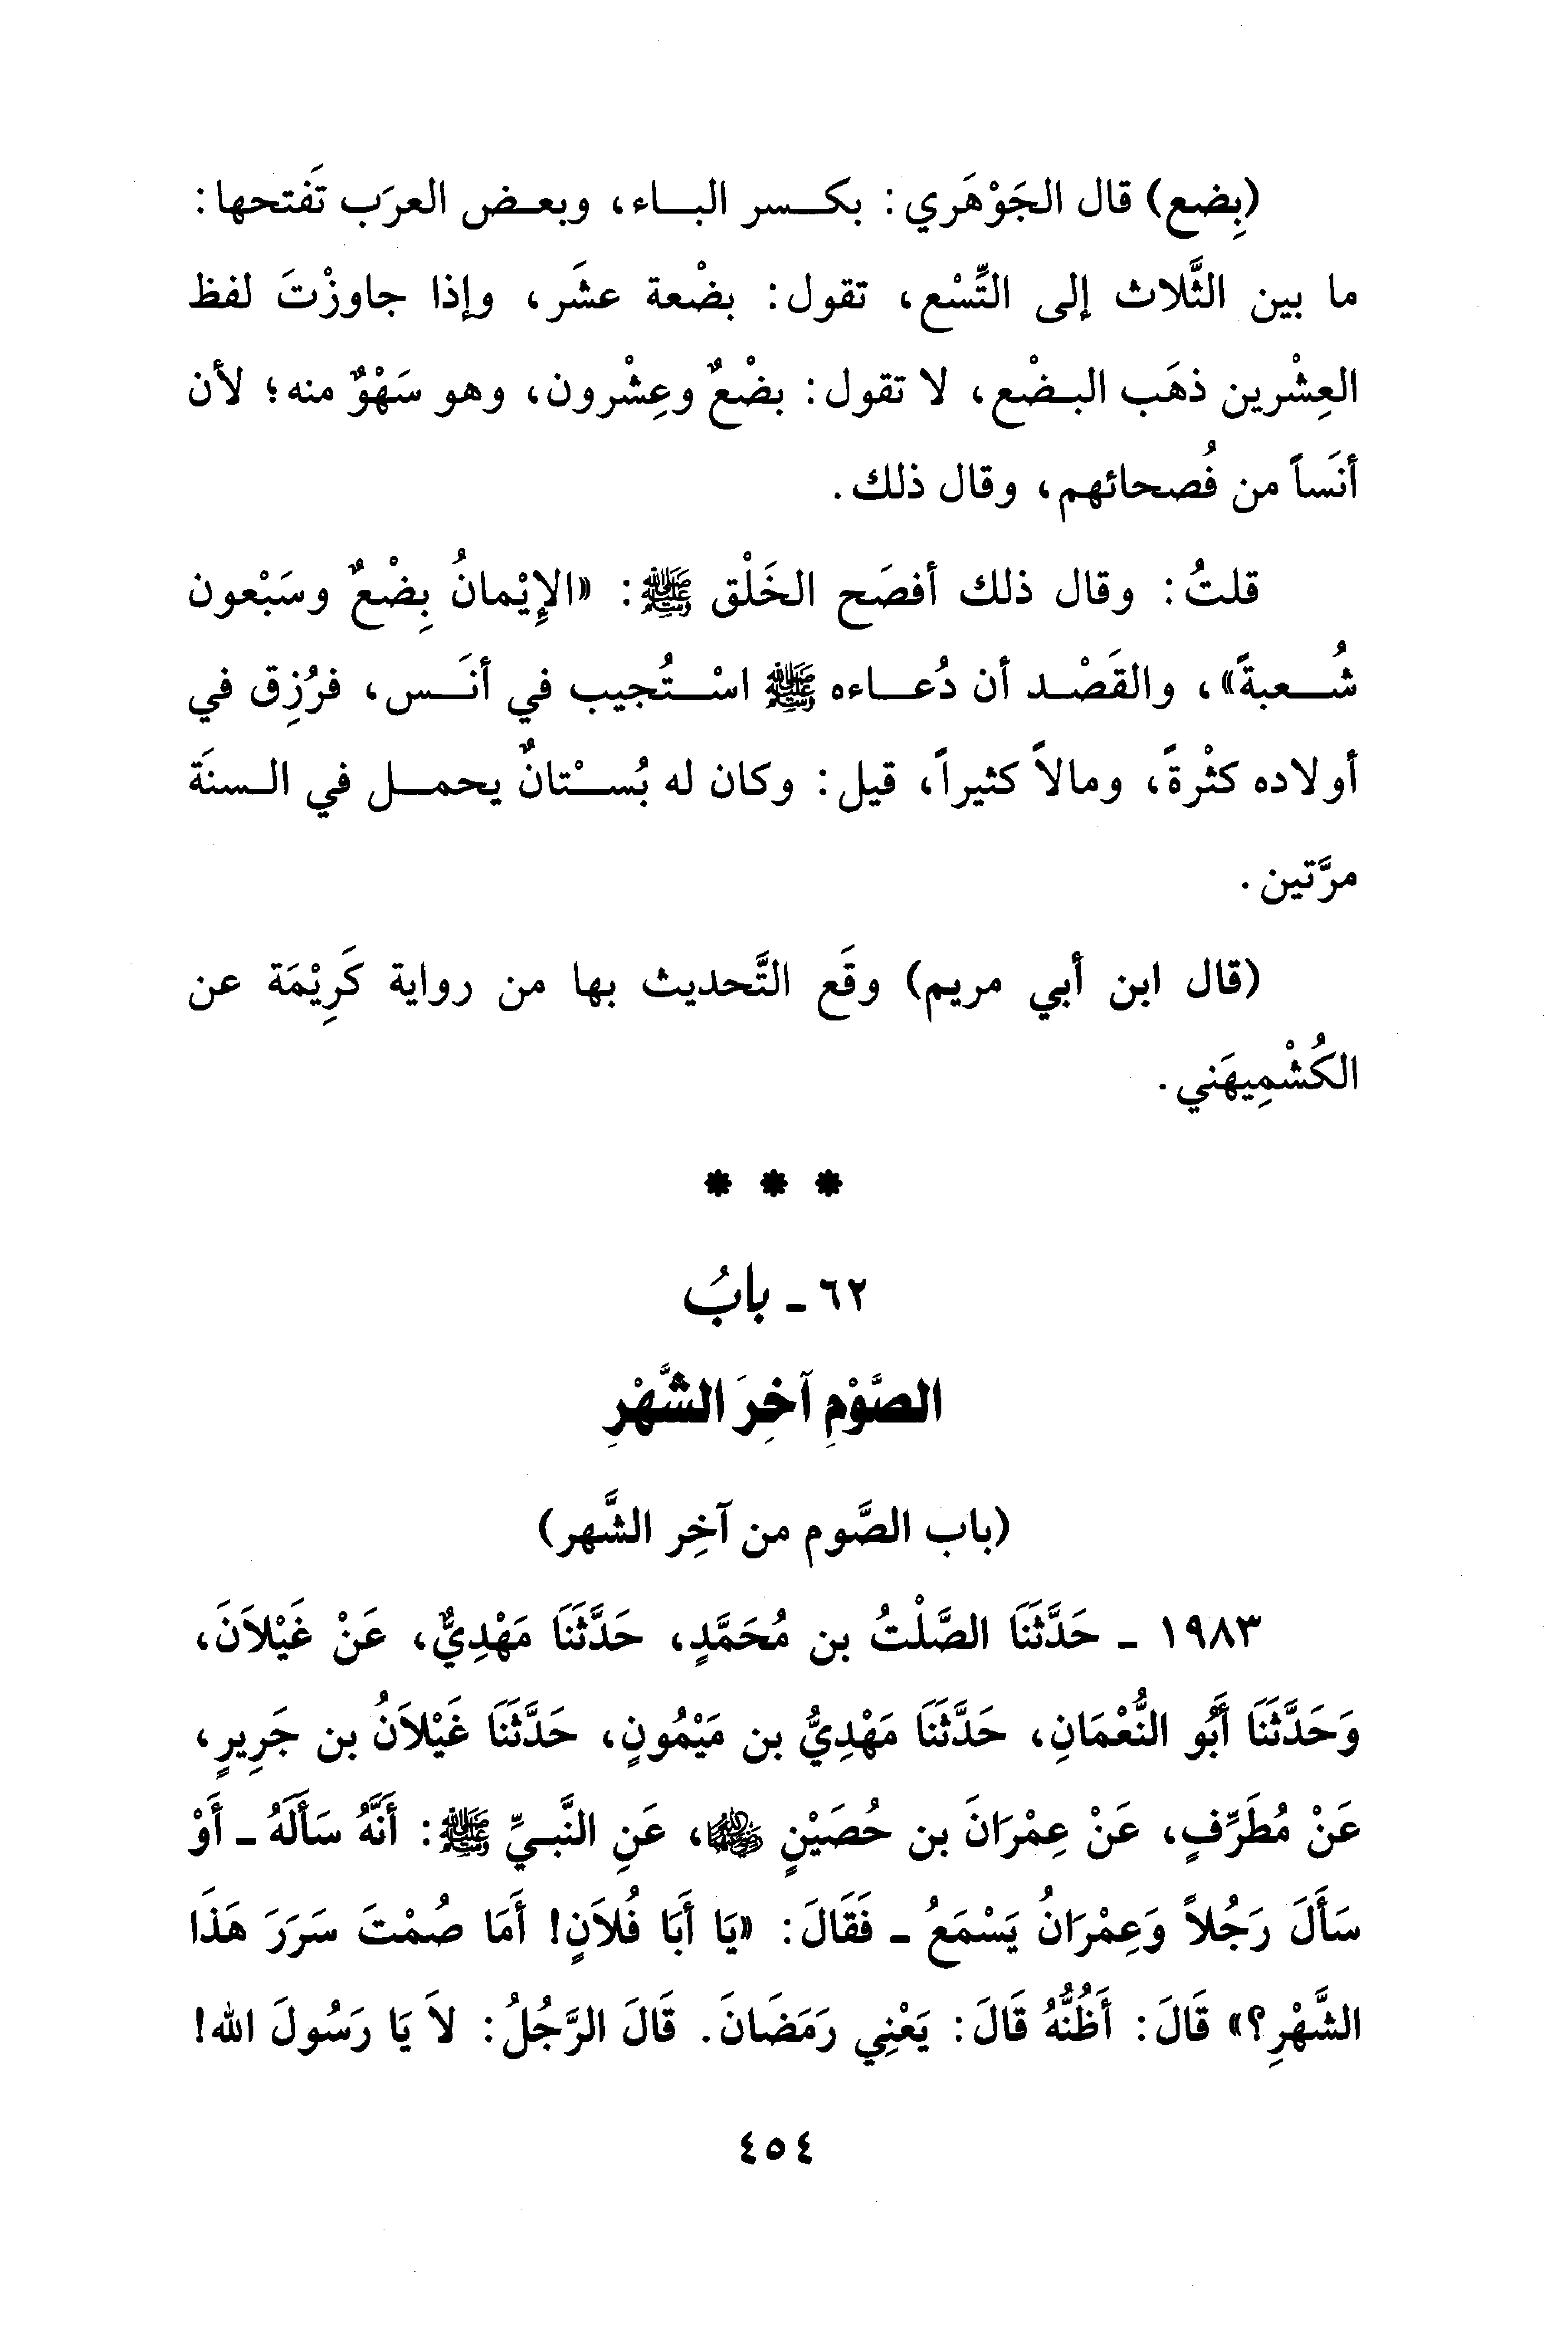 (بِضع) قال الجَوْهَري: بكسر الباء، وبعض العرَب تَفتحها:
ما بين الثَّلاث إلى التِّسْع، تقول: بضْعة عشَر، وإذا جاوزْتَ لفظ
العِشْرين ذهَب البضْع، لا تقول: بضْعٌ وعِشْرون، وهو سَهْوٌ منه؛ لأن
أنَساً من فُصحائهم، وقال ذلك.
قلتُ: وقال ذلك أفصَح الخَلْق ﷺ: «الإِيْمانُ بِضْعٌ وسَبْعون
شُعبةً»، والقَصْد أن دُعاءه ﷺ اسْتُجيب في أنَس، فرُزِق في
أولاده كثْرةً، ومالاً كثيراً، قيل: وكان له بُسْتانٌ يحمل في السنَة
مرَّتين.
(قال ابن أبي مريم) وقَع التَّحديث بها من رواية كَرِيْمَة عن
الكُشْمِيهَني.
* * *
٦٢ - بابُ
الصَّوْمِ آخِرَ الشَّهْرِ
(باب الصَّوم من آخِر الشَّهر)
١٩٨٣ - حَدَّثَنَا الصَّلْتُ بن مُحَمَّدٍ، حَدَّثَنَا مَهْدِيٌّ، عَنْ غَيْلاَنَ،
وَحَدَّثَنَا أَبُو النُّعْمَانِ، حَدَّثَنَا مَهْدِيُّ بن مَيْمُونٍ، حَدَّثَنَا غَيْلاَنُ بن جَرِيرٍ،
عَنْ مُطَرِّفٍ، عَنْ عِمْرَانَ بن حُصَيْنٍ رضي الله عنهما، عَنِ النَّبيِّ ﷺ: أَنَّهُ سَأَلَهُ - أَوْ
سَأَلَ رَجُلاً وَعِمْرَانُ يَسْمَعُ - فَقَالَ: «يَا أَبَا فُلاَنٍ! أَمَا صُمْتَ سَرَرَ هَذَا
الشَّهْرِ؟» قَالَ: أَظُنُّهُ قَالَ: يَعْنِي رَمَضَانَ. قَالَ الرَّجُلُ: لاَ يَا رَسُولَ الله!
٤٥٤